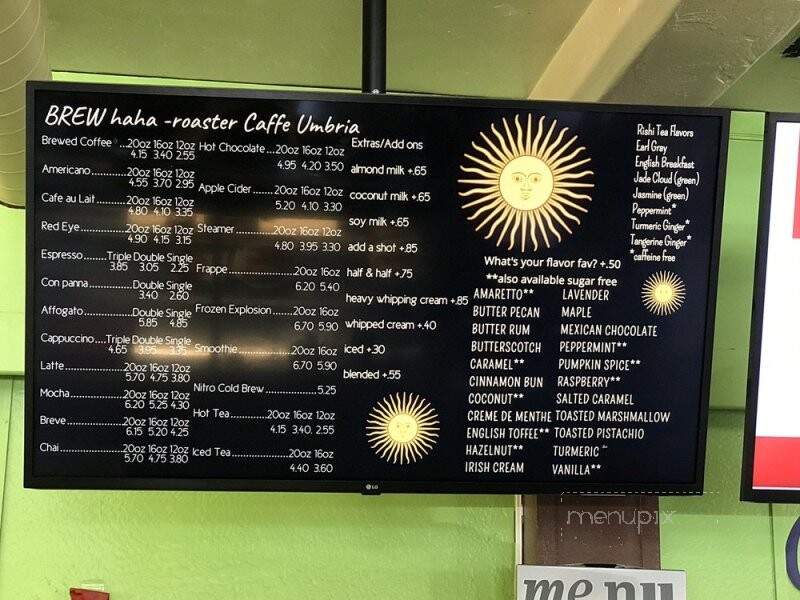 BREW haha -roaster Caffe Umbria
Brewed Coffee ...20oz 16oz 12oz
4.15 3.40 2.55
Americano............20oz 16oz 12oz
4.55 3.70 2.95
Cafe au Lait..........20oz 16oz 12oz
4.80 4.10 3.35
Red Eye................20oz 16oz 12oz
4.90 4.15 3.15
Espresso.......Triple Double Single
3.85 3.05 2.25
Con panna..............Double Single
3.40 2.60
Affogato.................Double Single
5.85 4.85
Cappuccino....Triple Double Single
4.65 3.95 3.35
Latte......................20oz 16oz 12oz
5.70 4.75 3.80
Mocha...................20oz 16oz 12oz
6.20 5.25 4.30
Breve.....................20oz 16oz 12oz
6.15 5.20 4.25
Chai.......................20oz 16oz 12oz
5.70 4.75 3.80
Hot Chocolate...20oz 16oz 12oz
4.95 4.20 3.50
Apple Cider.......20oz 16oz 12oz
5.20 4.10 3.30
Steamer............20oz 16oz 12oz
4.80 3.95 3.30
Frappe....................20oz 16oz
6.20 5.40
Frozen Explosion.......20oz 16oz
6.70 5.90
Smoothie.................20oz 16oz
6.70 5.90
Nitro Cold Brew................5.25
Hot Tea..............20oz 16oz 12oz
4.15 3.40. 2.55
Iced Tea...................20oz 16oz
4.40 3.60
Extras/Add ons
almond milk +.65
coconut milk +.65
soy milk +.65
add a shot +.85
half & half +.75
heavy whipping cream +.85
whipped cream +.40
iced +.30
blended +.55
What's your flavor fav? +.50
**also available sugar free
AMARETTO**
BUTTER PECAN
BUTTER RUM
BUTTERSCOTCH
CARAMEL**
CINNAMON BUN
COCONUT**
CREME DE MENTHE
ENGLISH TOFFEE**
HAZELNUT**
IRISH CREAM
LAVENDER
MAPLE
MEXICAN CHOCOLATE
PEPPERMINT**
PUMPKIN SPICE**
RASPBERRY**
SALTED CARAMEL
TOASTED MARSHMALLOW
TOASTED PISTACHIO
TURMERIC
VANILLA**
Rishi Tea Flavors
Earl Gray
English Breakfast
Jade Cloud (green)
Jasmine (green)
Peppermint*
Turmeric Ginger*
Tangerine Ginger*
*caffeine free
LG
menupix
menu